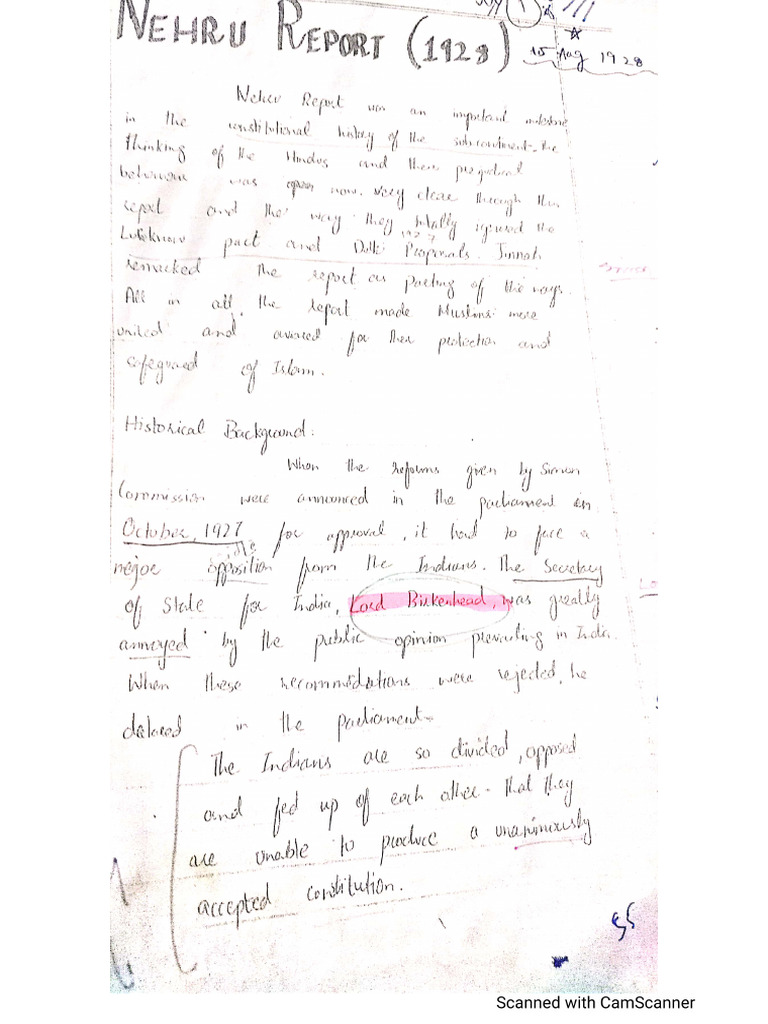 NEHRU REPORT (1928)
15 Aug 1928
Nehru Report was an important milestone
in the constitutional history of the subcontinent, the
thinking of the Hindus and there perpetual
behaviour was open now. very clear through this
report and the way they totally ignored the
1927
Lucknow pact and Delhi Proposals. Jinnah
remarked the report as parting of the ways.
All in all, the report made Muslims more
united and for their protection and
safeguard of Islam.
Historical Background:
When the reforms given by Simon
Commission were announced in the parliament in
October, 1927 for approval, it had to face a
major opposition from the Indians. The Secretary
of State for India, Lord Birkenhead, was greatly
annoyed by the public opinion prevailing in India.
When these recommodations were rejected, he
delared in the parliament-
The Indians are so divided, opposed
and fed up of each other. that they
are unable to produce a unanimously
accepted constitution.
Scanned with CamScanner